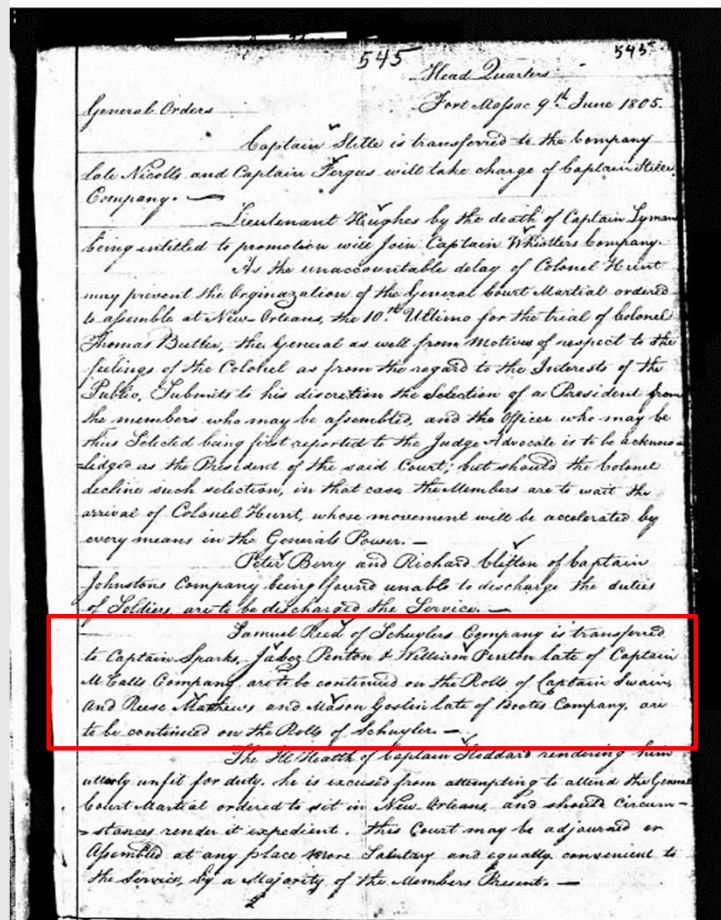 545
545
Head Quarters
Fort Massac 9th June 1805.
General Orders
Captain Stille is transferred to the Company
late Nicolls and Captain Fergus will take charge of Captain Stilles
Company. —
Lieutenant Hughes by the death of Captain Lyman
being entitled to promotion will Join Captain Whistlers Company.
As the unaccountable delay of Colonel Hunt
may prevent the Orginazation of the General Court Martial ordered
to assemble at New Orleans, the 10th Ultimo for the trial of Colonel
Thomas Butler, the General as well from Motives of respect to the
feelings of the Colonel as from the regard to the Interests of the
Public, Submits to his discretion the Selection of a President from
the members who may be assembled, and the Officer who may be
thus Selected being first reported to the Judge Advocate is to be acknow-
-ledged as the President of the said Court; but should the Colonel
decline such selection, in that case the Members are to wait the
arrival of Colonel Hunt, whose movement will be accelerated by
every means in the Generals Power. —
Peter Berry and Richard Clifton of Captain
Johnstons Company being found unable to discharge the duties
of Soldiers, are to be discharged the Service. —
Samuel Reed of Schuylers Company is transferred
to Captain Sparks, Jabez Penton & William Penton late of Captain
McCalls Company, are to be continued on the Rolls of Captain Swain,
And Reese Mathews and Mason Goslin late of Bootes Company, are
to be continued on the Rolls of Schuyler. —
The Ill Health of Captain Stoddard rendering him
utterly unfit for duty, he is excused from attempting to attend the General
Court Martial ordered to sit in New Orleans, and should Circum-
-stances render it expedient. this Court may be adjourned or
Assembled at any place more Salutary and equally convenient to
the Service, by a Majority of the Members Present. —